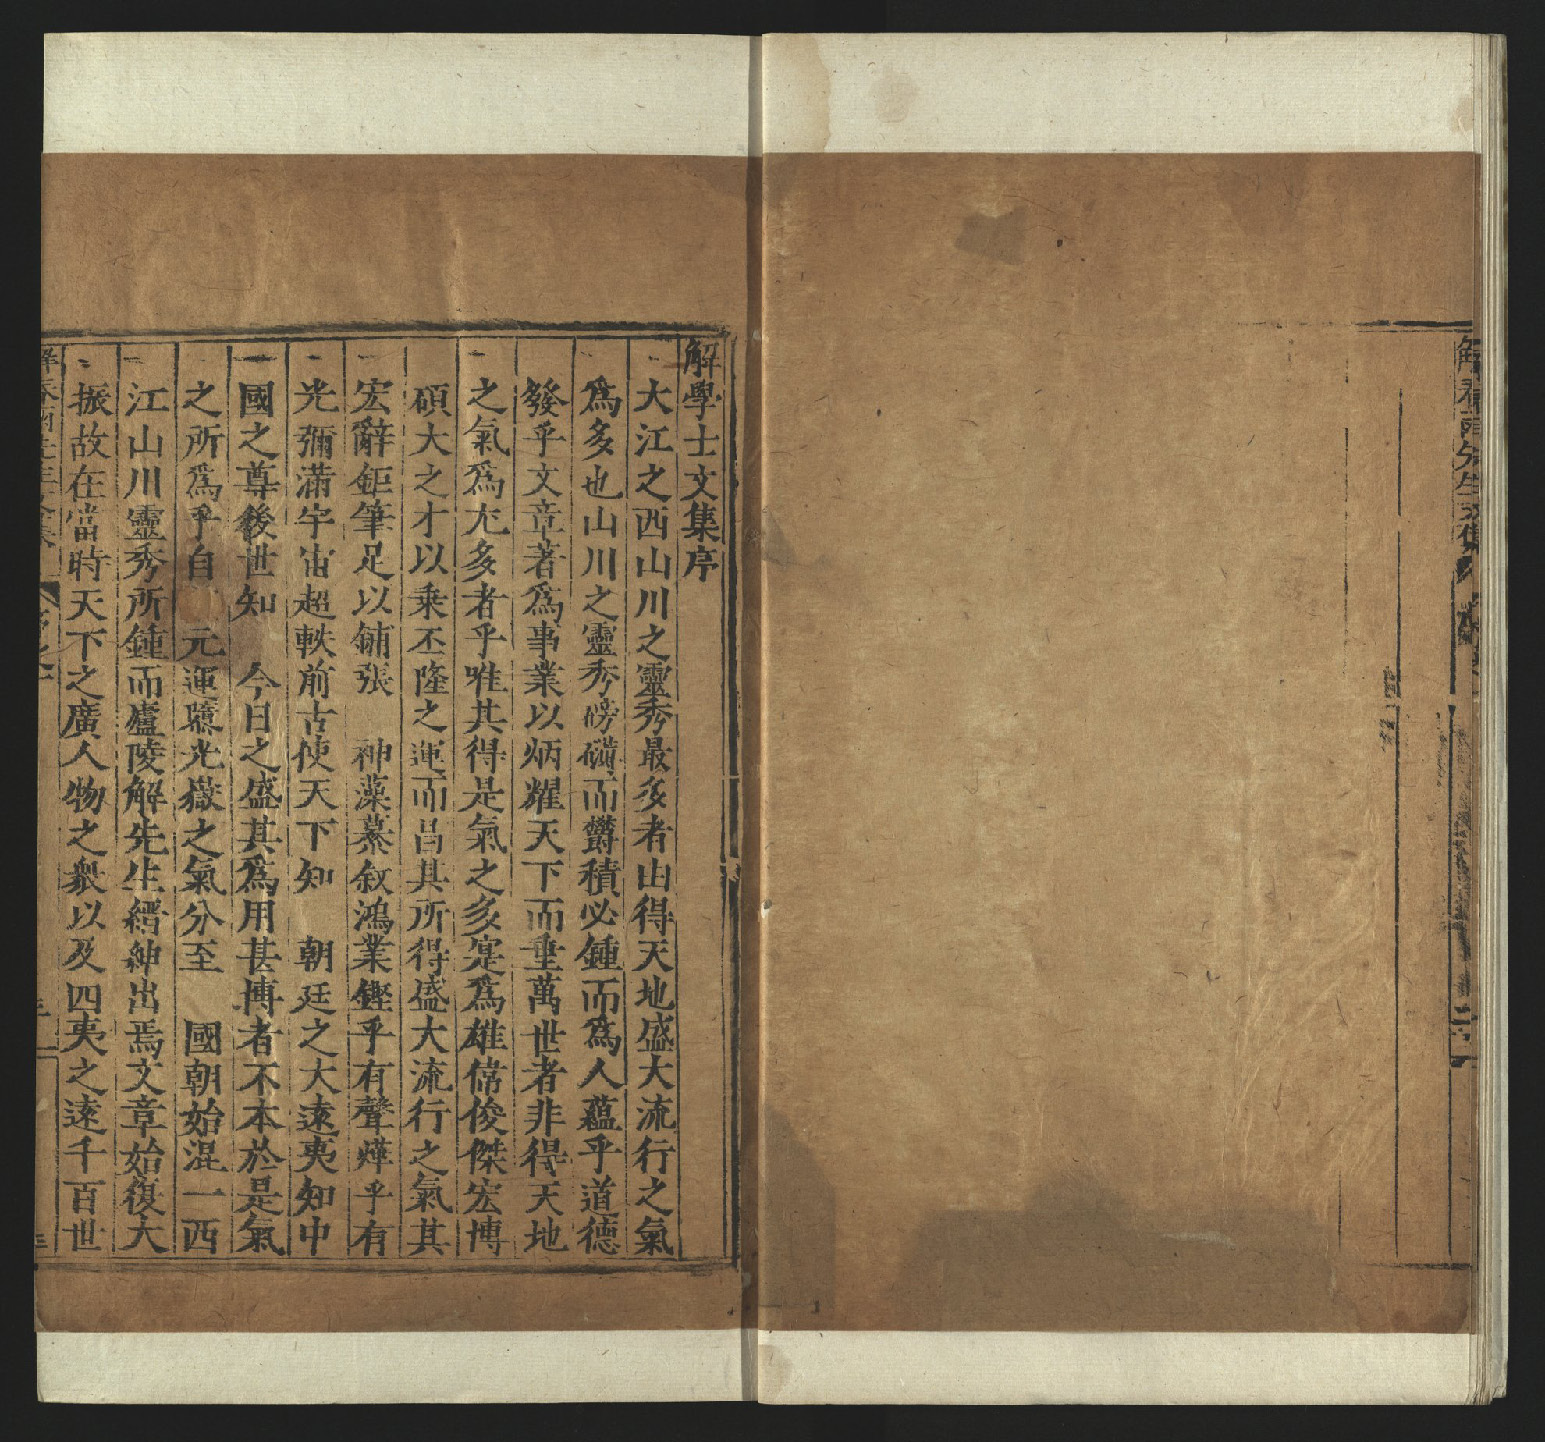 解學士文集序
大江之西山川之靈秀最多者由得天地盛大流行之氣
爲多也山川之靈秀磅礴而欝積必鍾而爲人蘊乎道德
發乎文章著爲事業以炳耀天下而垂萬世者非得天地
之氣爲尤多者乎唯其得是氣之多寔爲雄偉俊傑宏博
碩大之才以乘丕隆之運而昌其所得盛大流行之氣其
宏辭鉅筆足以鋪張 神藻纂敘鴻業鏗乎有聲燁乎有
光彌滿宇宙超軼前古使天下知 朝廷之大遠夷知中
國之尊後世知 今日之盛其爲用甚博者不本於是氣
之所爲乎自 元運 光嶽之氣分至 國朝始混一西
江山川靈秀所鍾而廬陵解先生縉紳出焉文章始復大
振故在當時天下之廣人物之衆以及四夷之遠千百世